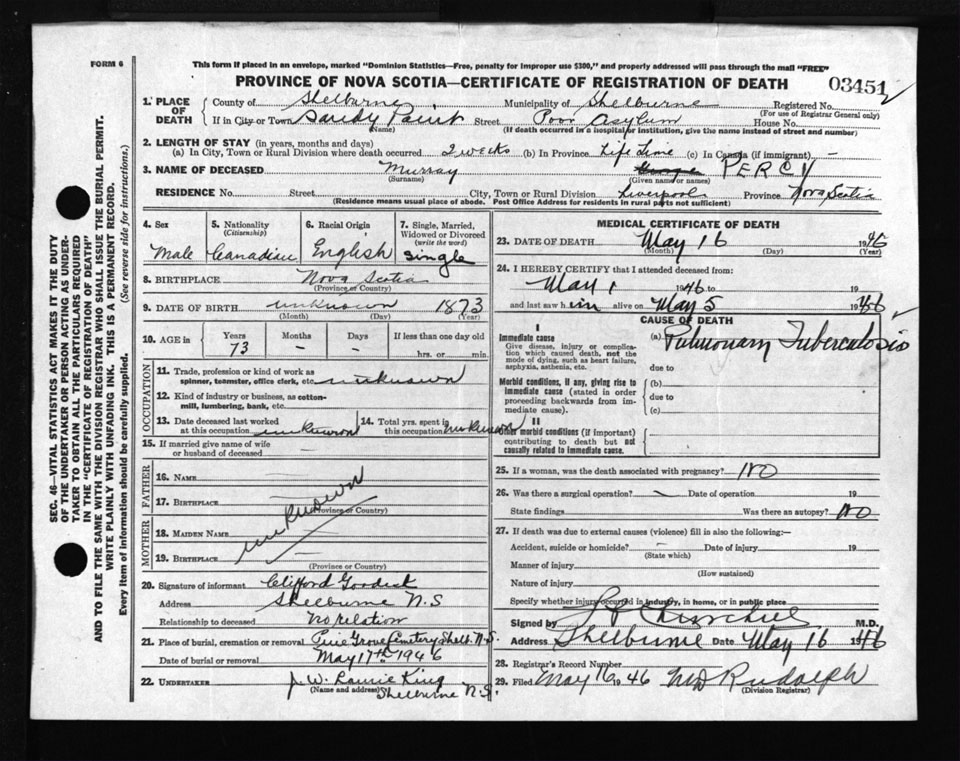 FORM 6
This form if placed in an envelope, marked "Dominion Statistics—Free, penalty for improper use $300," and properly addressed will pass through the mail "FREE"
PROVINCE OF NOVA SCOTIA—CERTIFICATE OF REGISTRATION OF DEATH
03451
1. PLACE OF DEATH
County of Shelburne Municipality of Shelburne Registered No.
(For use of Registrar General only)
If in City or Town Sandy Point Street Poor Asylum House No.
(Name) (If death occurred in a hospital or institution, give the name instead of street and number)
2. LENGTH OF STAY (in years, months and days)
(a) In City, Town or Rural Division where death occurred 2 weeks (b) In Province Life Time (c) In Canada (if immigrant) —
3. NAME OF DECEASED Murray PERCY
(Surname) (Given name or names)
RESIDENCE No. Street City, Town or Rural Division Liverpool Province Nova Scotia
(Residence means usual place of abode. Post Office Address for residents in rural parts not sufficient)
4. Sex Male
5. Nationality (Citizenship) Canadian
6. Racial Origin English
7. Single, Married, Widowed or Divorced (write the word) Single
8. BIRTHPLACE Nova Scotia
(Province or Country)
9. DATE OF BIRTH unknown 1873
(Month) (Day) (Year)
10. AGE in Years 73 Months — Days — If less than one day
hrs. or min.
OCCUPATION
11. Trade, profession or kind of work as spinner, teamster, office clerk, etc. unknown
12. Kind of industry or business, as cotton-mill, lumbering, bank, etc.
13. Date deceased last worked at this occupation unknown
14. Total yrs. spent in this occupation unknown
15. If married give name of wife or husband of deceased —
FATHER
16. NAME
17. BIRTHPLACE
(Province or Country)
unknown
MOTHER
18. MAIDEN NAME
19. BIRTHPLACE
(Province or Country)
20. Signature of informant Clifford Goodick
Address Shelburne N.S
Relationship to deceased no relation
21. Place of burial, cremation or removal Pine Grove Cemetery Shelb. N.S.
Date of burial or removal May 17th 1946
22. UNDERTAKER J. W. Laurie King
(Name and address) Shelburne N.S.
MEDICAL CERTIFICATE OF DEATH
23. DATE OF DEATH May 16 1946
(Month) (Day) (Year)
24. I HEREBY CERTIFY that I attended deceased from:
May 1 1946 to 19
and last saw him alive on May 5 1946
CAUSE OF DEATH
I
Immediate cause
Give disease, injury or complication which caused death, not the mode of dying, such as heart failure, asphyxia, asthenia, etc.
(a) Pulmonary Tuberculosis
due to
Morbid conditions, if any, giving rise to immediate cause (stated in order proceeding backwards from immediate cause).
(b)
due to
(c)
II
Other morbid conditions (if important) contributing to death but not causally related to immediate cause.
25. If a woman, was the death associated with pregnancy? no
26. Was there a surgical operation? — Date of operation 19
State findings Was there an autopsy? no
27. If death was due to external causes (violence) fill in also the following:—
Accident, suicide or homicide? — Date of injury 19
(State which)
Manner of injury
(How sustained)
Nature of injury
Specify whether injury occurred in industry, in home, or in public place
Signed by Churchill M.D.
Address Shelburne Date May 16 1946
28. Registrar's Record Number
29. Filed May 16 1946 Rudolph
(Division Registrar)
SEC. 46—VITAL STATISTICS ACT MAKES IT THE DUTY
OF THE UNDERTAKER OR PERSON ACTING AS UNDER-
TAKER TO OBTAIN ALL THE PARTICULARS REQUIRED
IN THE "CERTIFICATE OF REGISTRATION OF DEATH"
AND TO FILE THE SAME WITH THE DIVISION REGISTRAR WHO SHALL ISSUE THE BURIAL PERMIT.
WRITE PLAINLY WITH UNFADING INK. THIS IS A PERMANENT RECORD.
Every item of information should be carefully supplied. (See reverse side for instructions.)